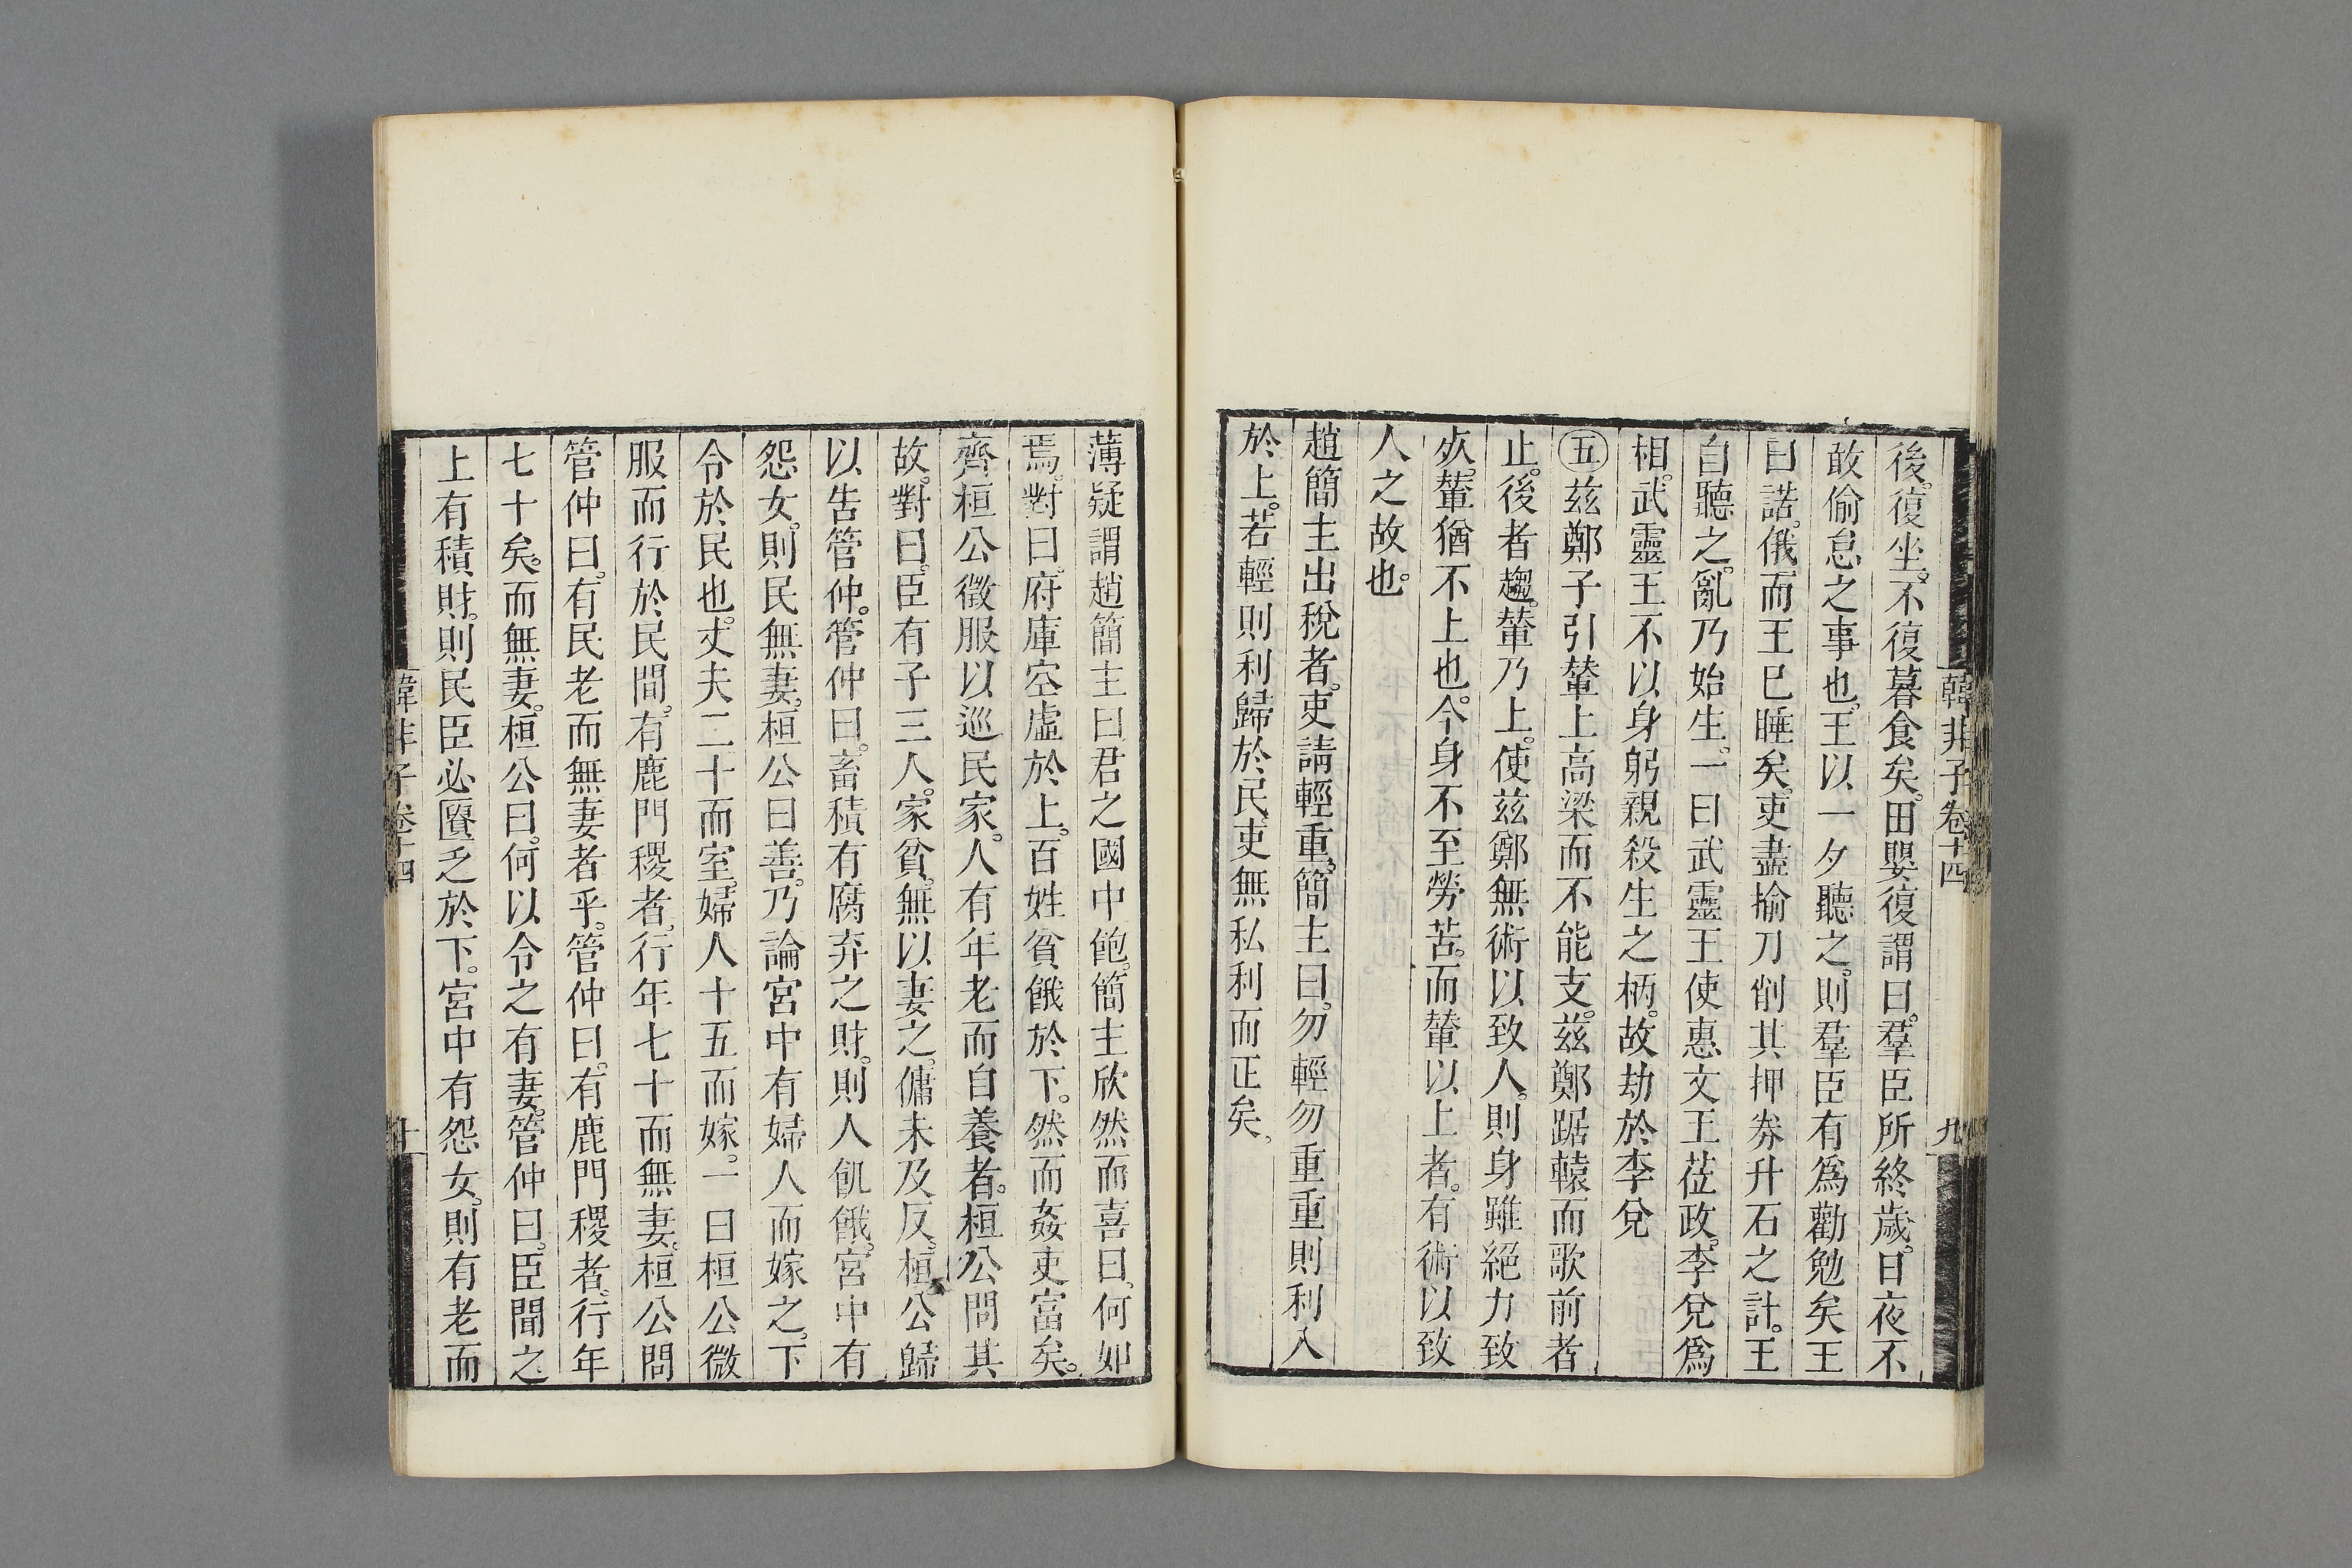 韓非子卷十四
九
後。復坐。不復暮食矣。田嬰復謂曰。羣臣所終歲。日夜不
敢偷怠之事也。王以一夕聽之。則羣臣有爲勸勉矣王
曰諾。俄而王巳睡矣。吏盡揄刀削其押券升石之計。王
自聽之。亂乃始生。一曰武靈王使惠文王莅政。李兌爲
相。武靈王不以身躬親殺生之柄。故劫於李兌
五茲鄭子引輦上高梁而不能支。茲鄭踞轅而歌前者
止。後者趨。輦乃上。使茲鄭無術以致人。則身雖絕力致
死。輦猶不上也。今身不至勞苦。而輦以上者。有術以致
人之故也。
趙簡主出稅者。吏請輕重。簡主曰。勿輕勿重重則利入
於上。若輕則利歸於民吏無私利而正矣。
薄疑謂趙簡主曰君之國中飽。簡主欣然而喜曰。何如
焉。對曰。府庫空虛於上。百姓貧餓於下。然而姦吏富矣。
齊桓公微服以巡民家。人有年老而自養者。桓公問其
故。對曰。臣有子三人。家貧。無以妻之。傭未及反。桓公歸
以告管仲。管仲曰。畜積有腐弃之財。則人飢餓。宮中有
怨女。則民無妻。桓公曰善。乃論宮中有婦人而嫁之。下
令於民也。丈夫二十而室。婦人十五而嫁。一曰桓公微
服而行於民間。有鹿門稷者。行年七十而無妻。桓公問
管仲曰。有民老而無妻者乎。管仲曰。有鹿門稷者。行年
七十矣。而無妻。桓公曰。何以令之有妻。管仲曰。臣聞之
上有積財。則民臣必匱乏於下。宮中有怨女。則有老而
韓非子卷十四
十